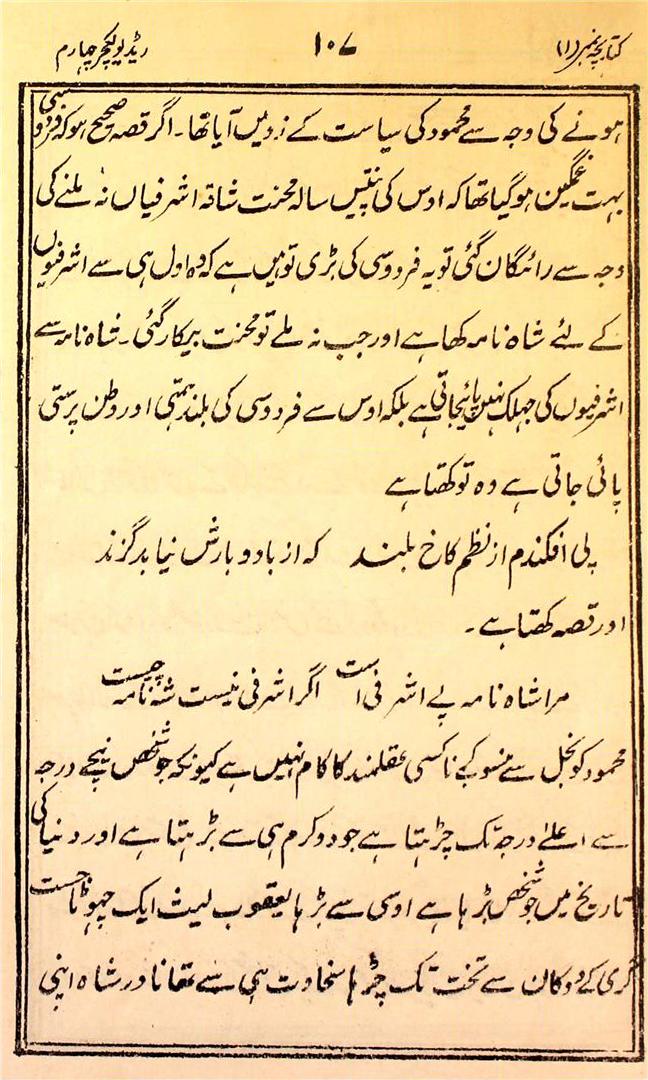 کتابچہ نمبر (۱)
۱۰۷
ریڈیو لکچر چہارم
ہونے کی وجہ سے محمود کی سیاست کے زد میں آیا تھا۔ اگر قصہ صحیح ہو کہ فردوسی
بہت غمگین ہو گیا تھا کہ اوس کی پنتیس سالہ محنت شاقہ اشرفیاں نہ ملنے کی
وجہ سے رائگان گئی تو یہ فردوسی کی بڑی توہین ہے کہ وہ اول ہی سے اشرفیوں
کے لئے شاہ نامہ کھا ہے اور جب نہ ملے تو محنت بیکار گئی۔ شاہ نامہ سے
اشرفیوں کی جہلک نہیں پائیجاتی ہے بلکہ اوس سے فردوسی کی بلند ہمتی اور وطن پرستی
پائی جاتی ہے وہ تو کھتا ہے
پی افکندم از نظم کاخ بلند که از باد و بارش نیابد گزند
اور قصہ کھتا ہے۔
مرا شاہ نامہ پے اشرفی است اگر اشرفی نیست شہ نامہ چیست
محمود کو بخل سے منسوب کے نا کسی عقلمند کا کام نہیں ہے کیونکہ جو شخص نیچے درجہ
سے اعلےٰ درجہ تک چڑہتا ہے جود و کرم ہی سے بڑہتا ہے اور دنیا کی
تاریخ میں جو شخص بڑہا ہے اوسی سے بڑہا یعقوب لیث ایک چہوٹا
گری کے دوکان سے تخت تک چڑہا سخاوت ہی سے تھا نادر شاہ اپنی